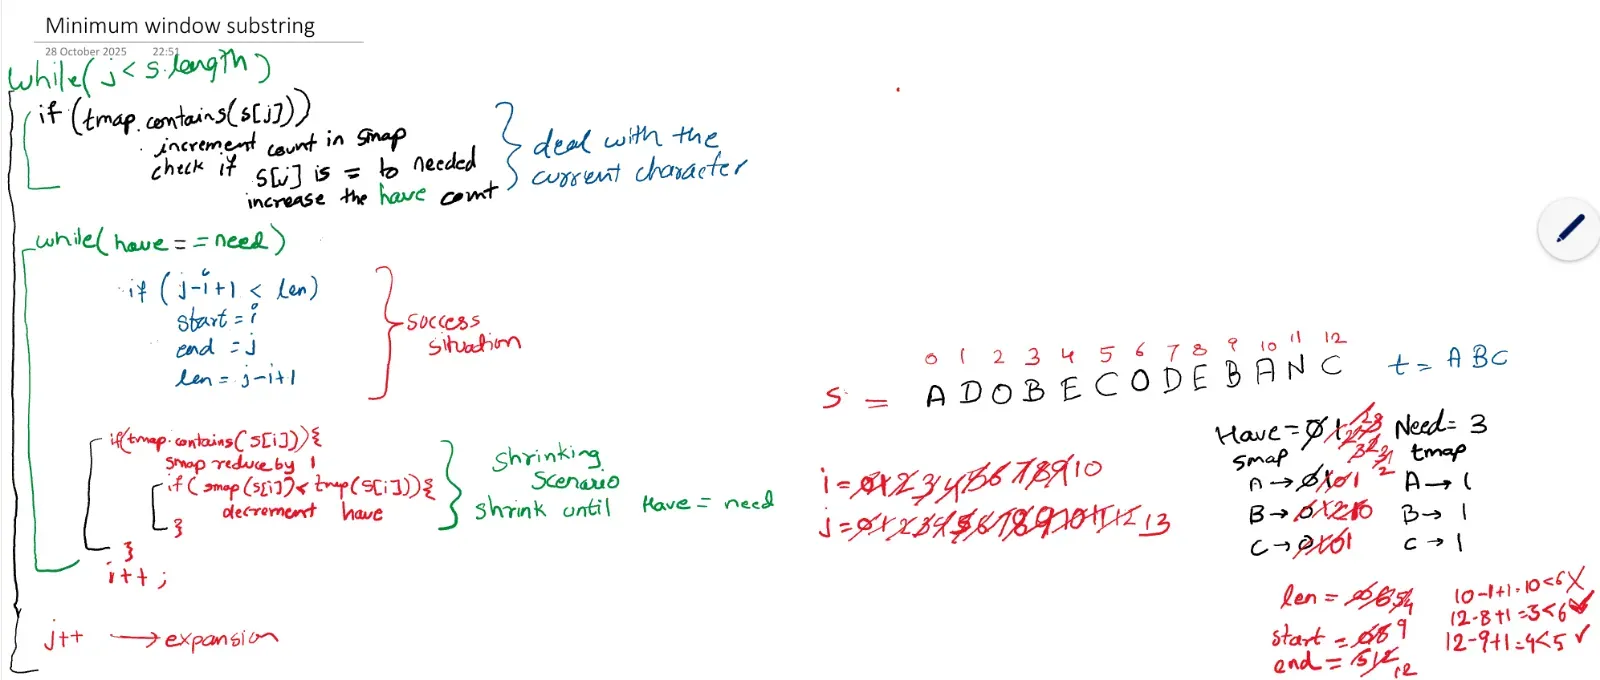 Minimum window substring
28 October 2025 22:51
while(j < s.length)
if (tmap.contains(s[j]))
increment count in smap
check if s[j] is = to needed
increase the have count
deal with the
current character
while(have == need)
if (j-i+1 < len)
start = i
end = j
len = j-i+1
success
situation
if(tmap.contains(s[i])){
smap reduce by 1
if(smap(s[i])<tmap(s[i])){
decrement have
}
}
i++;
shrinking
scenario
shrink until Have = need
j++ → expansion
0 1 2 3 4 5 6 7 8 9 10 11 12
s = A D O B E C O D E B A N C
t = ABC
i = 0 1 2 3 4 5 6 7 8 9 10
j = 0 1 2 3 4 5 6 7 8 9 10 11 12 13
Have = 0 1
Need = 3
smap
tmap
A → 0 1 0 1
A → 1
B → 0 1 2 1 0
B → 1
C → 0 1 0 1
C → 1
len = 6 5 4
start = 0 8 9
end = 5 12 12
10-1+1=10<6 X
12-8+1=5<6 ✓
12-9+1=4<5 ✓